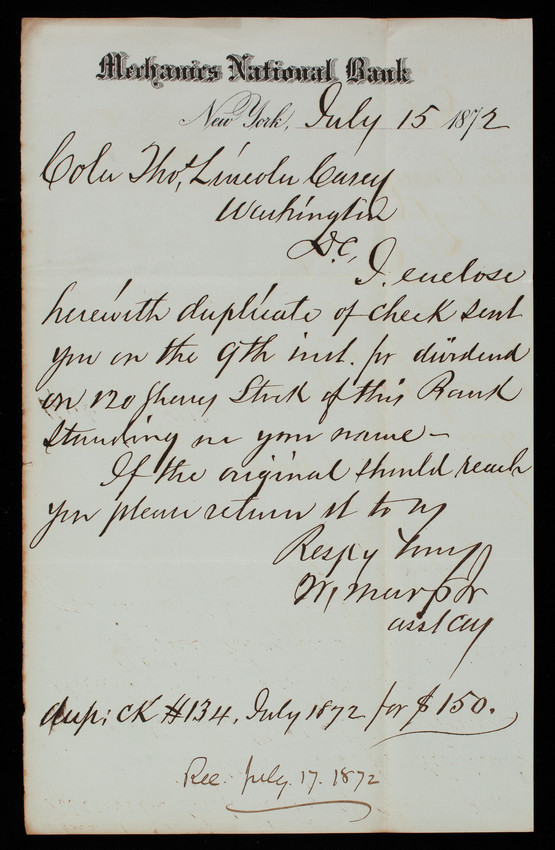 Mechanics National Bank
New York, July 15 1872
Coln Thos. Lincoln Casey
Washington
D.C.
I enclose
herewith duplicate of check sent
you on the 9th inst. for dividend
on 120 Shares Stock of this Bank
Standing in your name -
If the original should reach
you please return it to us
Respy Yours
W,
asst Cas
dup: CK #134, July 1872 for $150.
Rec. July. 17. 1872